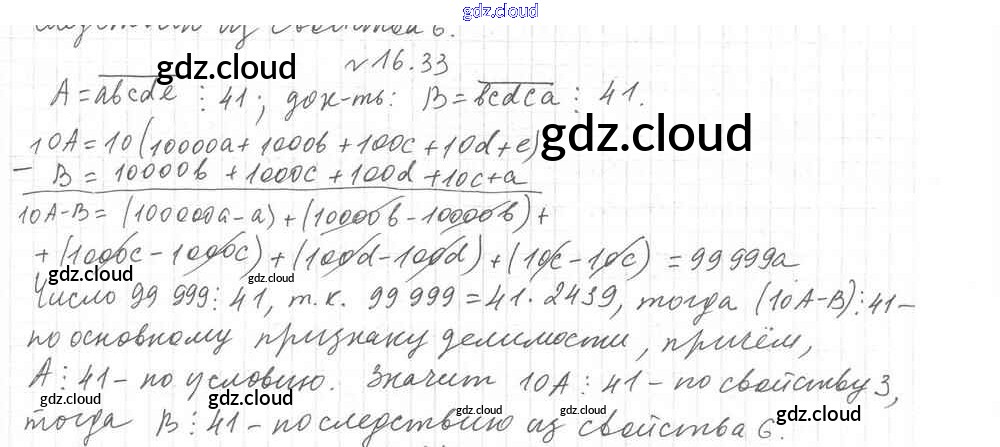 gdz.cloud
из свойства 6.
№16.33
A = abcde ⋮ 41; док-ть: B = bcdca ⋮ 41.
10A = 10(10000a + 1000b + 100c + 10d + e)
− B = 10000b + 1000c + 100d + 10c + a
10A − B = (100000a − a) + (10000b − 10000b) +
+ (1000c − 1000c) + (100d − 100d) + (10c − 10c) = 99 999a
Число 99 999 ⋮ 41, т.к. 99 999 = 41 · 2439, тогда (10A − B) ⋮ 41 –
по основному признаку делимости, причём,
A ⋮ 41 – по условию. Значит 10A ⋮ 41 – по свойству 3,
тогда B ⋮ 41 – по следствию из свойства 6.
gdz.cloud
gdz.cloud
gdz.cloud
gdz.cloud
gdz.cloud
gdz.cloud
gdz.cloud
gdz.cloud